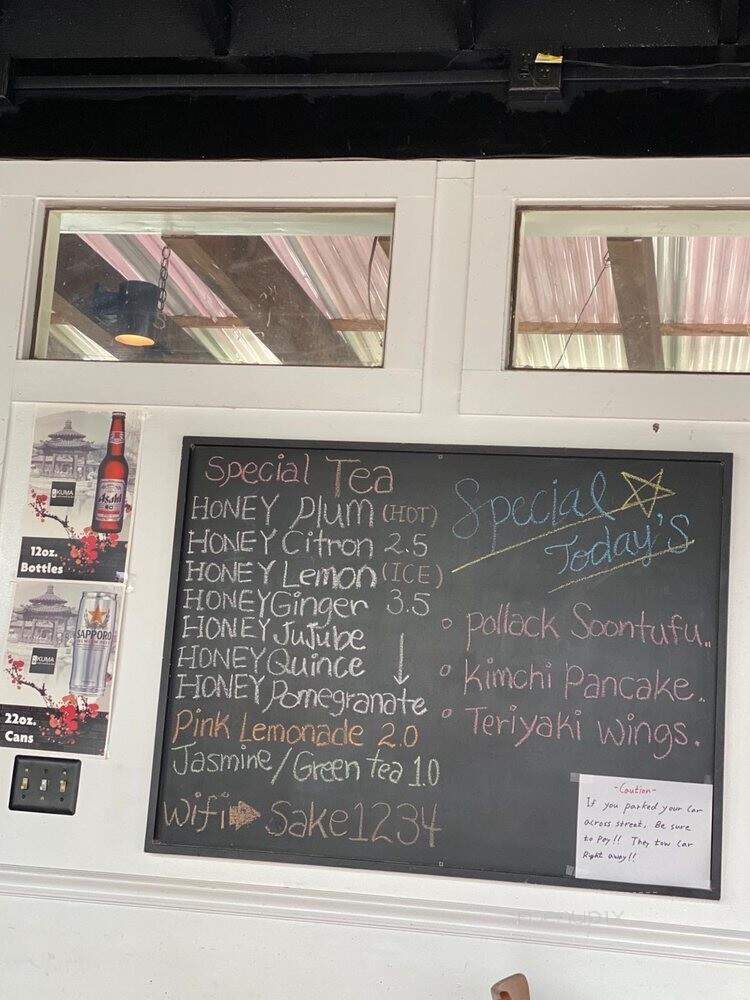 Special Tea
HONEY Plum (HOT)
HONEY Citron 2.5
HONEY Lemon (ICE)
HONEY Ginger 3.5
HONEY JuJube
HONEY Quince
HONEY Pomegranate
Pink Lemonade 2.0
Jasmine/Green tea 1.0
Wifi Sake1234
Special
Today's
Pollack Soontufu..
Kimchi Pancake..
Teriyaki Wings.
-Caution-
If you parked your Car
across street, Be sure
to Pay!! They tow Car
Right away!!
Asahi
KUMA
12oz.
Bottles
SAPPORO
KUMA
22oz.
Cans